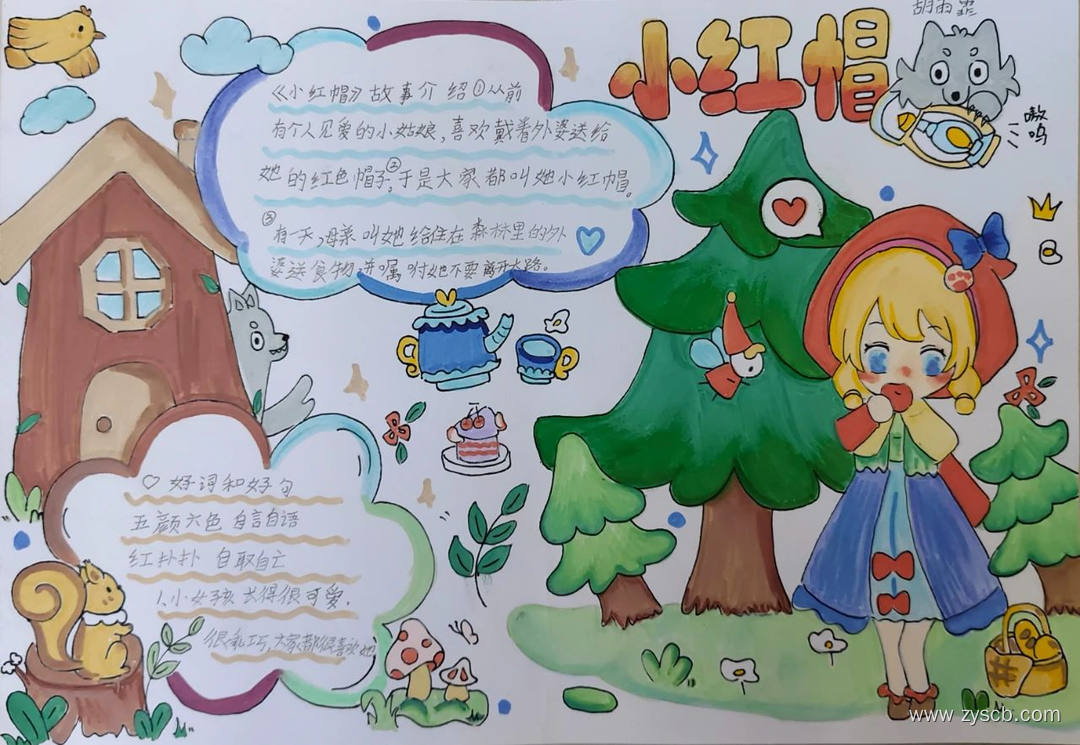 小红帽
胡雨霏
嗷呜
《小红帽》故事介绍①从前
有个人见人爱的小姑娘,喜欢戴着外婆送给
她的红色帽子,②于是大家都叫她小红帽。
③有一天,母亲叫她给住在森林里的外
婆送食物,并嘱咐她不要离开大路。
♡好词和好句
五颜六色 自言自语
红扑扑 自取自亡
1.小女孩长得很可爱.
很乖巧,大家都很喜欢她
www.zyscb.com